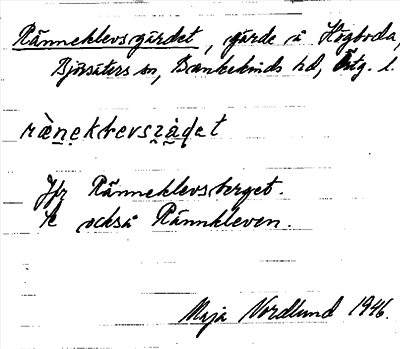 Ränneklevsgärdet, gärde å Högboda,
Björsäters sn, Bankekinds hd, Östg. l.
rä̀nekkevsꞩàdet
Jfr Ränneklevsberget.
Se också Rännkleven.
Maja Nordlund 1946.